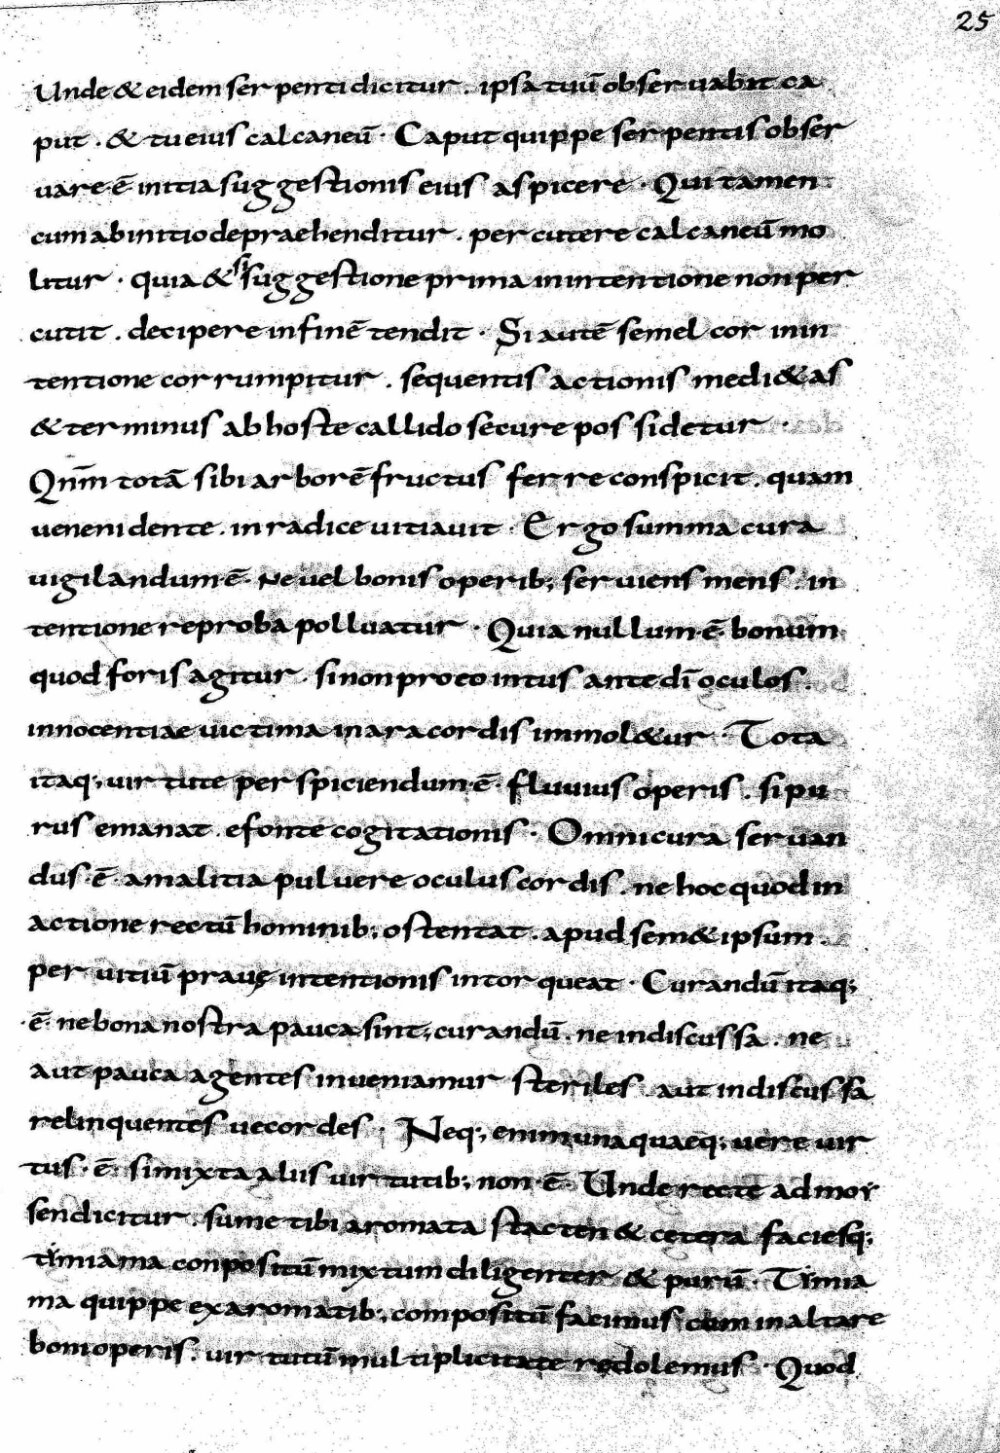 25
Unde & eidem serpenti dicitur . ipsa tuū obseruabit ca
put . & tu eius calcaneū · Caput quippe serpentis obser
uare·ē initia suggestionis eius aspicere · Qui tamen
cum ab initio depraehenditur . percutere calcaneū mo
litur · quia & si suggestione prima inintentione non per
cutit . decipere in finē tendit · Si autē semel cor in in
tentione corrumpitur . sequentis actionis medi&as
& terminus ab hoste callido secure possidetur ·
Qnm̄ totā sibi arborē fructus ferre conspicit . quam
ueneni dente . in radice uitiauit · Ergo summa cura
uigilandum·ē· Ne uel bonis operib; seruiens mens . in
tentione reproba polluatur · Quia nullum·ē· bonum
quod foris agitur . si non pro eo intus ante dī oculos .
innocentiae uictima in ara cordis immol&ur · Tota
itaq; uirtute perspiciendum·ē· fluuius operis . si pu
rus emanat . e fonte cogitationis · Omni cura seruan
dus·ē· a malitia puluere oculus cordis . ne hoc quod in
actione rectū hominib; ostentat . apud sem&ipsum .
per uitiū prauę intentionis intorqueat · Curandū itaq;
·ē· ne bona nostra pauca sint; curandū . ne indiscussa . ne
aut pauca agentes inueniamur steriles . aut indiscussa
relinquentes uecordes · Neq; enim unaquaeq; uere uir
tus·ē· si mixta aliis uirtutib; non·ē· Unde recte ad moẏ
sen dicitur . sume tibi aromata stacten & cetera faciesq;
tẏmiama conpositū mixtum diligenter & purū · Tẏmia
ma quippe ex aromatib; compositū facimus cum in altare
boni operis . uirtutū multiplicitate redolemus · Quod